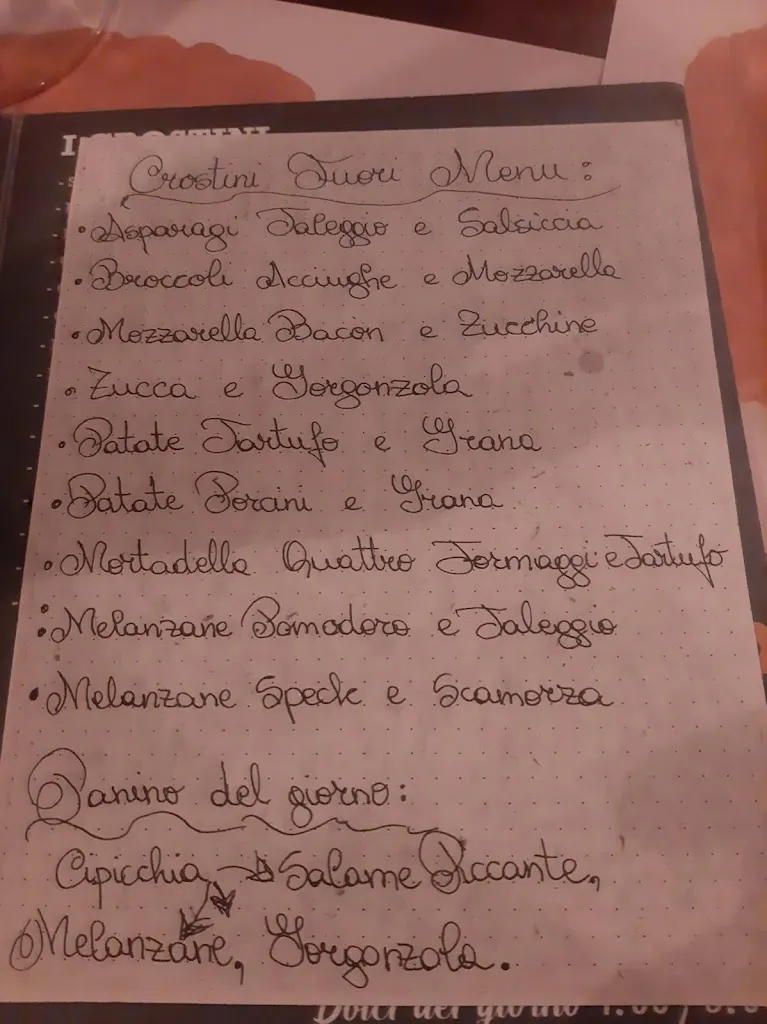 I CROSTINI
Crostini Fuori Menu:
• Asparagi Taleggio e Salsiccia
• Broccoli Acciughe e Mozzarella
• Mozzarella Bacon e Zucchine
• Zucca e Gorgonzola
• Patate Tartufo e Grana
• Patate Porcini e Grana
• Mortadella Quattro Formaggi e Tartufo
• Melanzane Pomodoro e Taleggio
• Melanzane Speck e Scamorza
Panino del giorno:
Cipicchia → Salame Piccante,
Melanzane, Gorgonzola.
Dolci del giorno